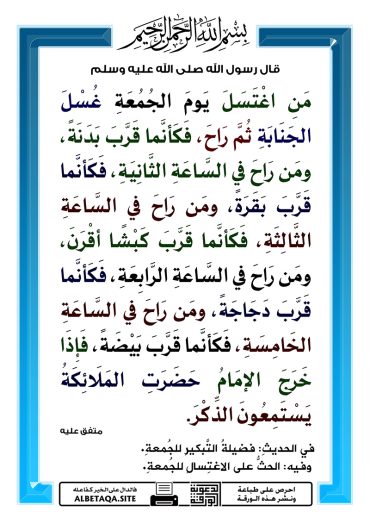 بِسْمِ اللَّهِ الرَّحْمَنِ الرَّحِيمِ
قال رسول الله صلى الله عليه وسلم
مَنِ اغْتَسَلَ يَومَ الجُمُعَةِ غُسْلَ
الجَنَابَةِ ثُمَّ رَاحَ، فَكَأنَّما قَرَّبَ بَدَنَةً،
ومَن رَاحَ في السَّاعَةِ الثَّانِيَةِ، فَكَأنَّما
قَرَّبَ بَقَرَةً، ومَن رَاحَ في السَّاعَةِ
الثَّالِثَةِ، فَكَأنَّما قَرَّبَ كَبْشًا أقْرَنَ،
ومَن رَاحَ في السَّاعَةِ الرَّابِعَةِ، فَكَأنَّما
قَرَّبَ دَجَاجَةً، ومَن رَاحَ في السَّاعَةِ
الخَامِسَةِ، فَكَأنَّما قَرَّبَ بَيْضَةً، فَإِذَا
خَرَجَ الإمَامُ حَضَرَتِ المَلَائِكَةُ
يَسْتَمِعُونَ الذِّكْرَ.
متفق عليه
في الحديث: فضيلةُ التَّبكير للجُمعةِ.
وفيه: الحثُّ على الاغتِسال للجُمعةِ.
احرص على طباعة
ونشر هذه الورقة
لدعوتك
الورقة
فالدال على الخير كفاعله
ALBETAQA.SITE